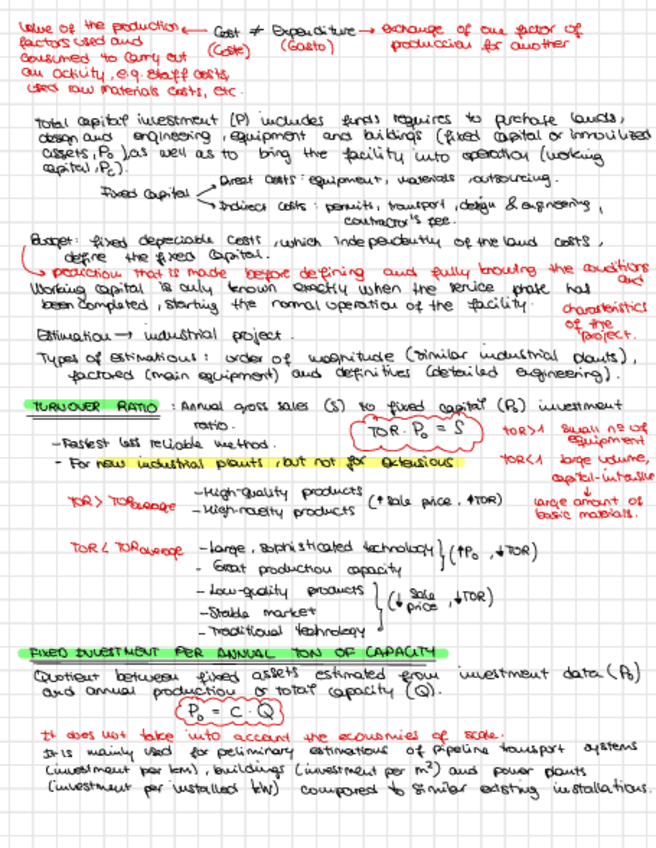 value of the production ← Cost ≠ Expenditure → exchange of one factor of
factors used and (Coste) (Gasto) production for another
consumed to carry out
an activity, e.g. staff costs,
used raw materials costs, etc.
Total capital investment (P) includes funds requires to purchase lands,
design and engineering, equipment and buildings (fixed capital or inmovilized
assets, P₀), as well as to bring the facility into operation (working
capital, Pc).
Fixed Capital → Direct costs: equipment, materials, outsourcing.
→ Indirect costs: permits, transport, design & engineering,
contractor's fee.
Budget: fixed depreciable costs, which independently of the land costs,
define the fixed capital.
→ prediction that is made before defining and fully knowing the conditions
and
Working capital is only known exactly when the service phase has
been completed, starting the normal operation of the facility.
characteristics
of the
project.
Estimation → industrial project.
Types of estimations: order of magnitude (similar industrial plants),
factored (main equipment) and definitives (detailed engineering).
TURNOVER RATIO: Annual gross sales (S) to fixed capital (P₀) investment
ratio.
TOR · P₀ = S
TOR>1 small nº of
equipment
- Fastest less reliable method.
- For new industrial plants, but not for extensions
TOR<1 large volume,
capital-intensive
↓
large amount of
basic materials.
TOR > TOR average - High-quality products
- High-novelty products (↑ sale price, ↑TOR)
TOR < TOR average - Large, sophisticated technology
- Great production capacity } (↑P₀, ↓TOR)
- Low-quality products
- Stable market
- Traditional technology } (↓ sale price, ↓TOR)
FIXED INVESTMENT PER ANNUAL TON OF CAPACITY
Quotient between fixed assets estimated from investment data (P₀)
and annual production or total capacity (Q).
P₀ = C · Q
It does not take into account the economies of scale.
It is mainly used for preliminary estimations of pipeline transport systems
(investment per km), buildings (investment per m²) and power plants
(investment per installed kW) compared to similar existing installations.